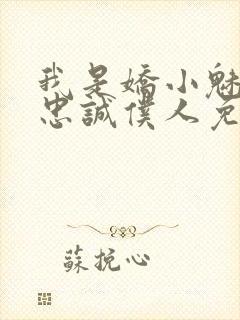 我是嬌小魅
忠誠僕人免
蘇挽心